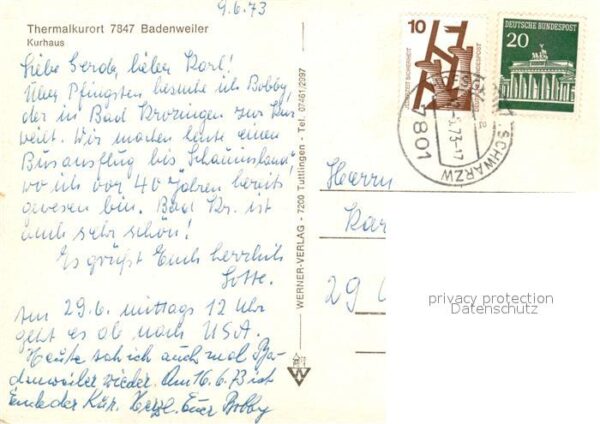 9.6.73
Thermalkurort 7847 Badenweiler
Kurhaus
Liebe Gerda, lieber Karl!
Über Pfingsten besuche ich Bobby,
der in Bad Krozingen zur Kur
weilt. Wir machen heute einen
Busausflug bis Schauinsland,
wo ich vor 40 Jahren bereits
gewesen bin. Bad Kr. ist
auch sehr schön!
Es grüßt Euch herzlich
Lotte.
Am 29.6. mittags 12 Uhr
geht es ab nach USA.
Heute sah ich auch mal Ba-
denweiler wieder. Am 16.6.73 ist
Ende der Kur. Herzl. Euer Bobby
WERNER-VERLAG - 7200 Tuttlingen - Tel. 07461/2997
W
10
DEUTSCHE BUNDESPOST
20
7801
SCHWARZW
73-17
a
Herrn
Kar
29
privacy protection
Datenschutz